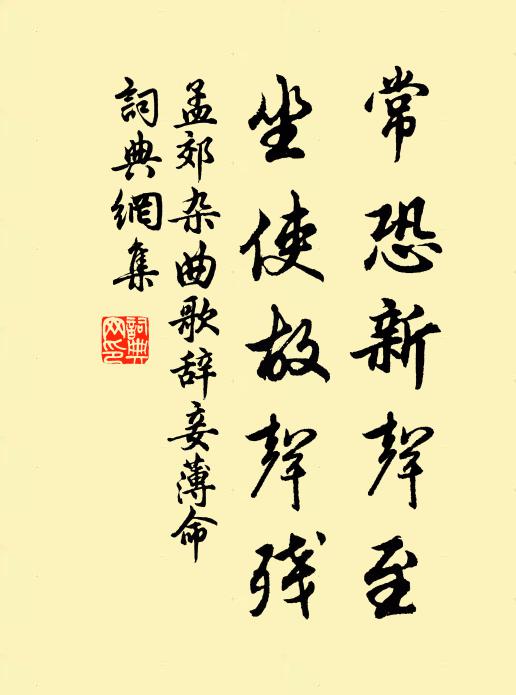 常恐新聲至
坐使故聲残
孟郊杂曲歌辞妾薄命
詞典網集
詞典
网印